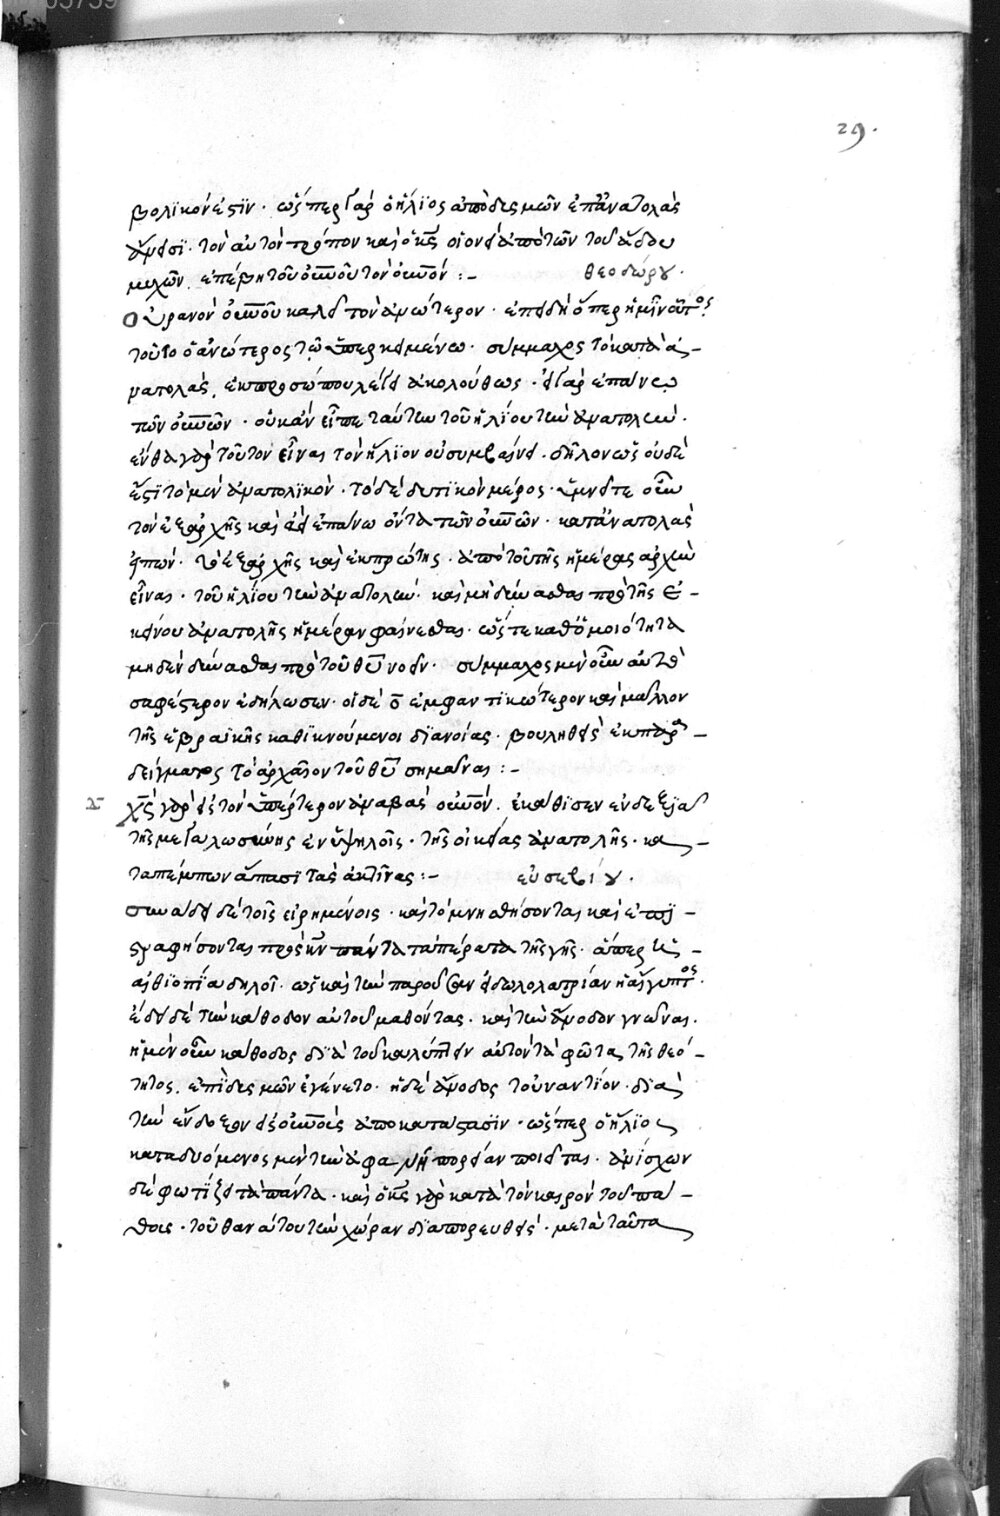 29.
βολϊκόν ἐστϊν. ὥσπερ γὰρ ὁ ἥλϊος ἀπὸ δεσμῶν ἐπ' ἀνατολὰς
ἄνεισϊ. τὸν αὐτὸν τρόπον καὶ ὁ κ̅ς̅ οἱονεὶ ἀπὸ τῶν τοῦ ἅδου
μυχῶν. ἐπέβη τοῦ ο̅υ̅ν̅ο̅υ̅ τὸν ο̅υ̅ν̅ο̅ν̅ :– θεοδώρου.
Οὐρανὸν ο̅υ̅ν̅ο̅υ̅ καλεῖ τὸν ἀνώτερον. ἐπειδὴ ὅπερ ἡμῖν οὗτος.
τοῦτο ὁ ἀνώτερος τῶ ὑπερκειμένω. σύμμαχος τὸ κατὰ ἀ–
νατολὰς, ἐκ πρώτης λέγει ἀκολούθως. εἰ γὰρ ἐπάνω
τῶν ο̅υ̅ν̅ῶν. οὐκ ἂν εἶπε ταύτην τοῦ ἡλίου τὴν ἀνατολήν.
ἔνθα γὰρ τοῦτον εἶναι τὸν ἥλϊον οὐ συμβαίνει. δῆλον ὡς οὐδέ
ἔστϊ τὸ μὲν ἀνατολϊκόν. τὸ δὲ δυτϊκὸν μέρος. ὑμνεῖτε οὖν
τὸν ἐξ ἀρχῆς καὶ ἀεὶ ἐπάνω ὄντα τῶν ο̅υ̅ν̅ῶν. κατ' ἀνατολὰς
εἰπών. τὸ ἐξ ἀρχῆς καὶ ἐκ πρώτης. ἀπὸ τοῦ τῆς ἡμέρας ἀρχὴν
εἶναι. τοῦ ἡλίου τὴν ἀνατολήν. καὶ μὴ δύνασθαι πρὸ τῆς ἐ–
κείνου ἀνατολῆς ἡμέραν φαίνεσθαι. ὥστε καθ' ὁμοιότητα
μηδὲν δύνασθαι πρὸ τοῦ θ̅υ̅ νοεῖν. σύμμαχος μὲν οὖν αὐτὸ
σαφέστερον ἐδήλωσεν. οἱ δὲ ο̅ ἐμφαντϊκώτερον καὶ μᾶλλον
τῆς ἑβραϊκῆς καθϊκνούμενοι δϊανοίας. βουληθεὶς ἐκ παρα–
δείγματος τὸ ἀρχαῖον τοῦ θ̅υ̅ σημᾶναι :–
χ̅ς̅ γὰρ εἰς τὸν ὑπέρτερον ἀναβὰς ο̅υ̅ν̅ο̅ν̅. ἐκάθϊσεν ἐν δεξϊᾶ
τῆς μεγαλωσύνης ἐν ὑψηλοῖς. τῆς οἰκείας ἀνατολῆς. κα–
ταπέμπων ἅπασϊ τὰς ἀκτῖνας :– εὐσεβίου.
συνάδει δὲ τοῖς εἰρημένοις. καὶ τὸ μνησθήσονται καὶ ἐπϊ–
στραφήσονται πρὸς κ̅ν̅ πάντα τὰ πέρατα τῆς γῆς. ἅπερ ἡ
αἰθϊοπία δηλοῖ. ὡς καὶ τὴν παροῦσαν εἰδωλολατρίαν ἡ αἴγυπτος.
ἔδει δὲ τὴν κάθοδον αὐτοῦ μαθόντας. καὶ τὴν ἄνοδον γνῶναι.
ἡ μὲν οὖν κάθοδος δϊὰ τοῦ καλύπτειν αὐτὸν τὰ φῶτα τῆς θεό–
τητος. ἐπὶ δεσμῶν ἐγένετο. ἡ δὲ ἄνοδος τοὐναντίον. δϊὰ
τὴν ἔνδοξον εἰς ο̅υ̅ν̅ο̅ὺ̅ς̅ ἀποκατάστασϊν. ὥσπερ ὁ ἥλϊος
καταδυόμενος μὲν τὴν ἀφανῆ πορείαν ποιεῖται. ἀνίσχων
δὲ φωτίζει τὰ πάντα. καὶ ὁ κ̅ς̅ γὰρ κατὰ τὸν καιρὸν τοῦ πά–
θους. τοῦ θανάτου τὴν χώραν δϊαπορευθείς. μετὰ ταῦτα